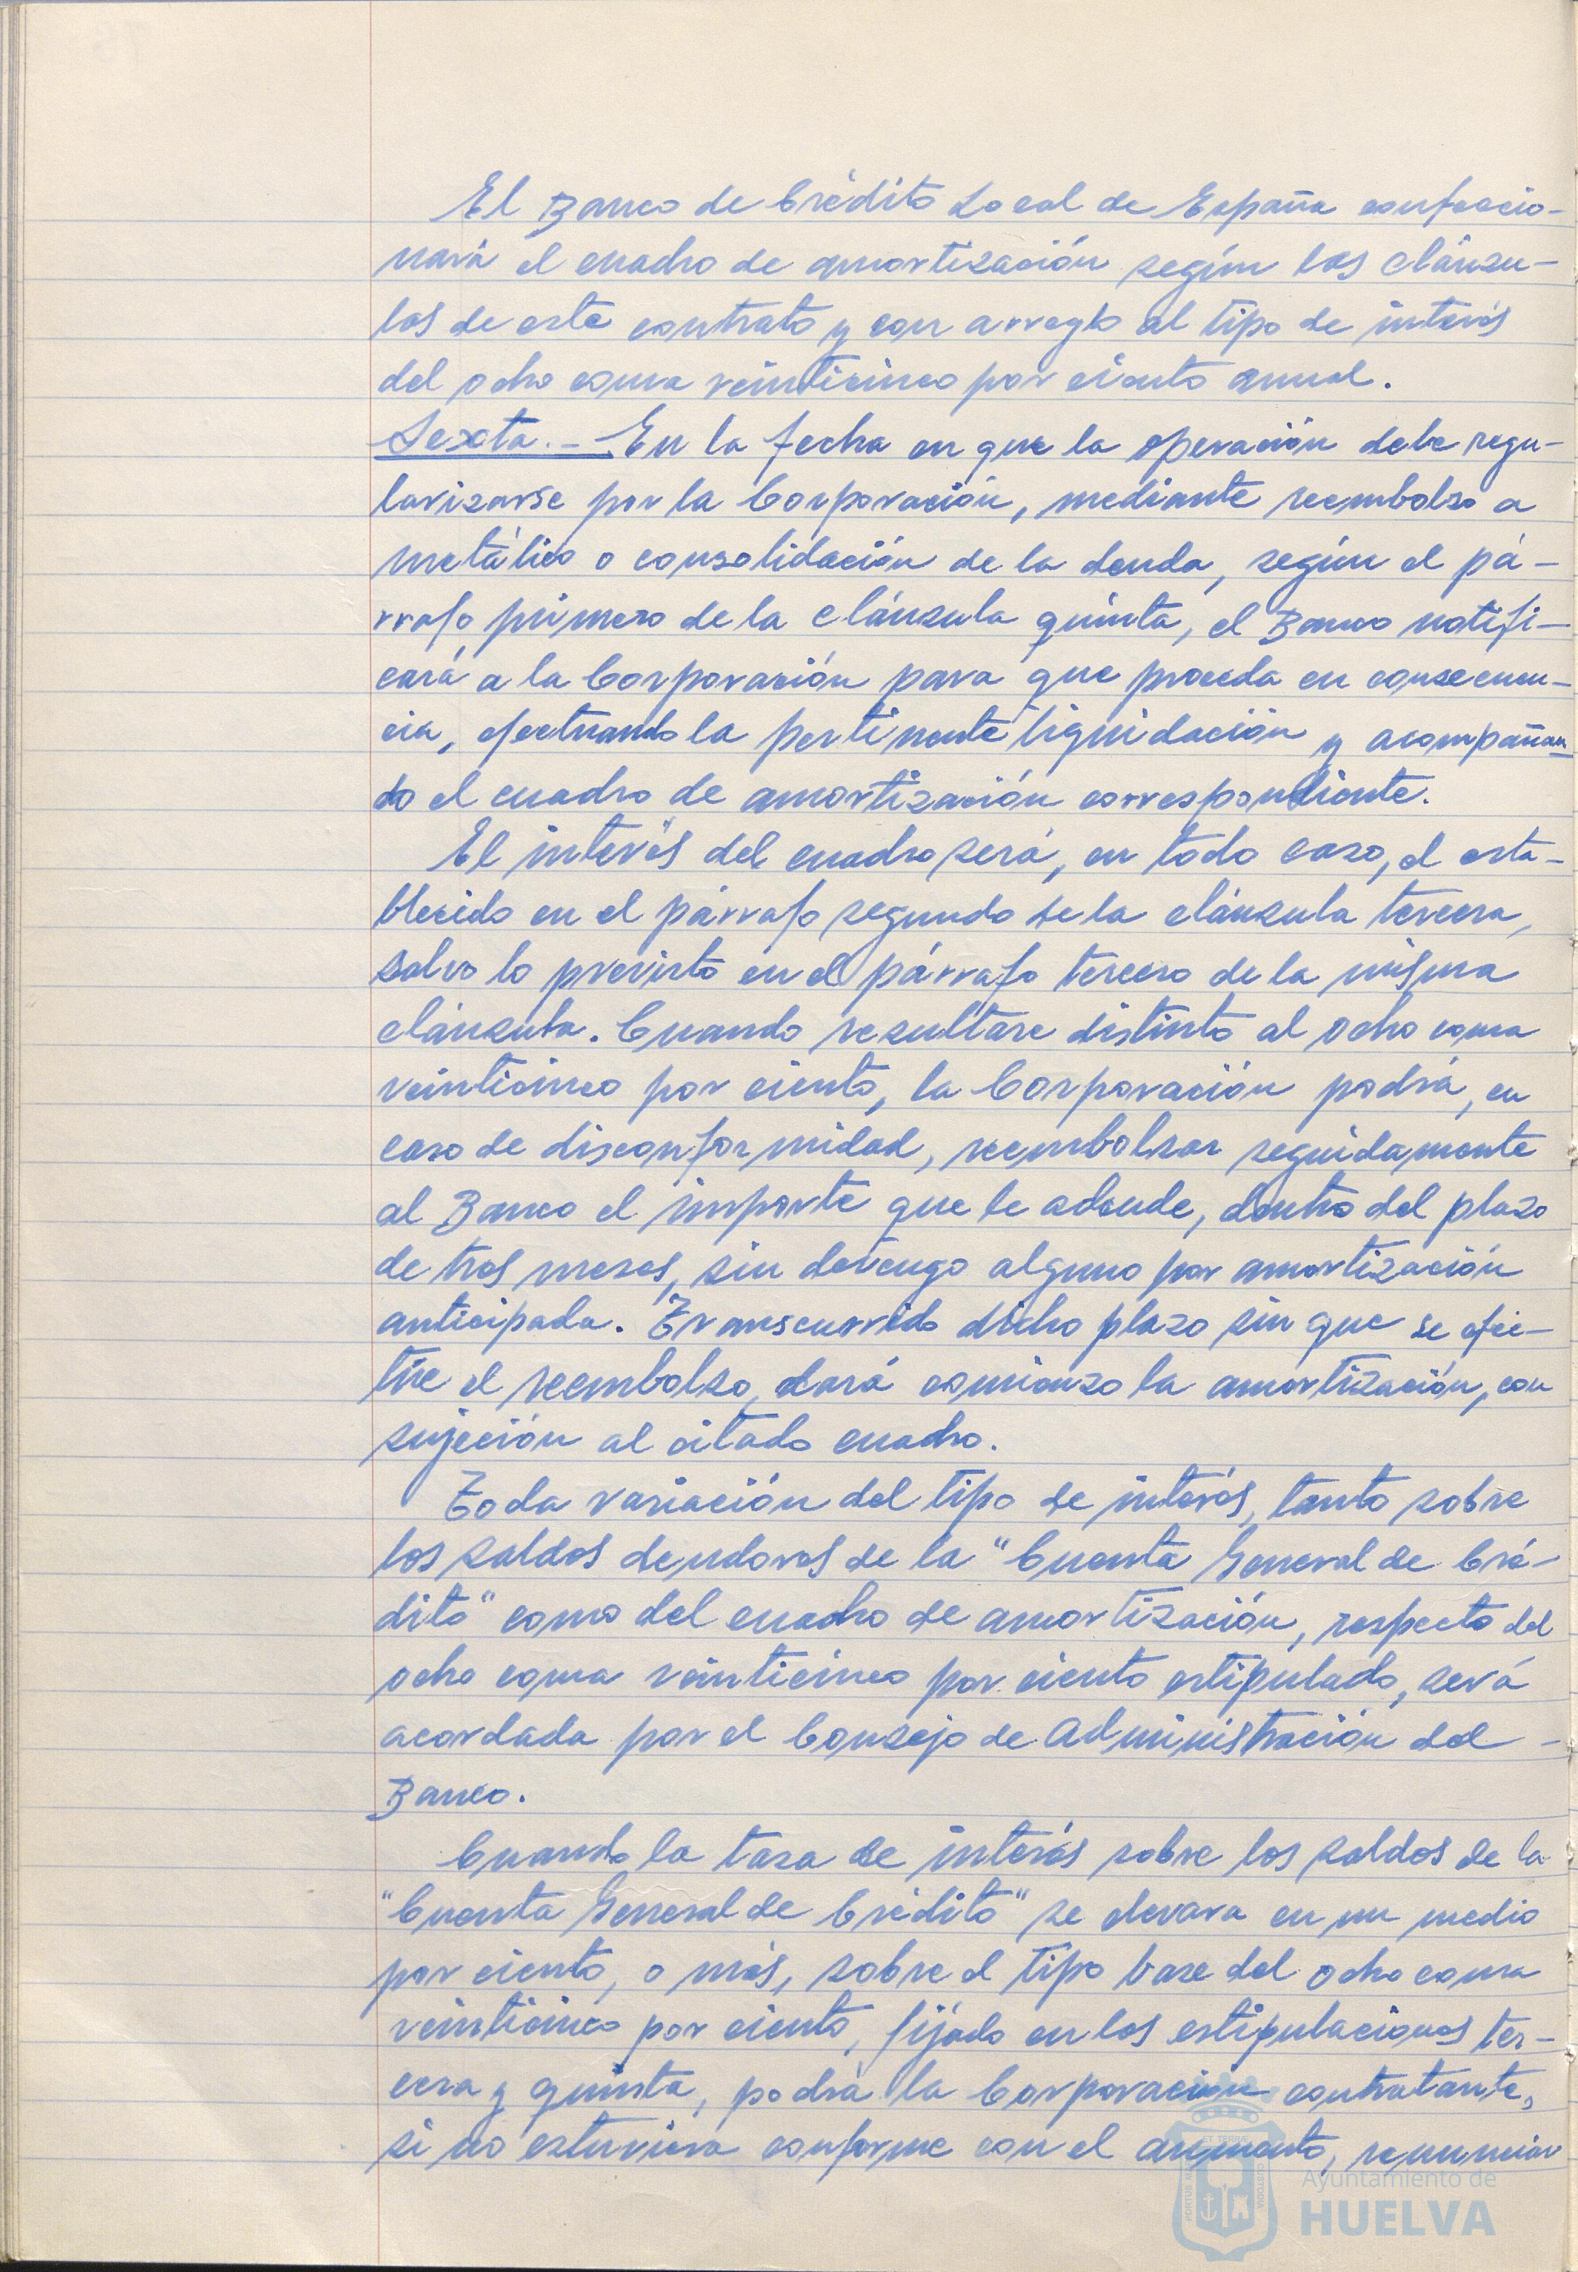 El Banco de Crédito Local de España confeccio-
nará el cuadro de amortización según las cláusu-
las de este contrato y con arreglo al tipo de interés
del ocho coma veinticinco por ciento anual.
Sexta.- En la fecha en que la operación debe regu-
larizarse por la Corporación, mediante reembolso a
metálico o consolidación de la deuda, según el pá-
rrafo primero de la cláusula quinta, el Banco notifi-
cará a la Corporación para que proceda en consecuen-
cia, efectuando la pertinente liquidación y acompañan-
do el cuadro de amortización correspondiente.
El interés del cuadro será, en todo caso, el esta-
blecido en el párrafo segundo de la cláusula tercera,
salvo lo previsto en el párrafo tercero de la misma
cláusula. Cuando resultare distinto al ocho coma
veinticinco por ciento, la Corporación podrá, en
caso de disconformidad, reembolsar seguidamente
al Banco el importe que le adeude, dentro del plazo
de tres meses, sin devengo alguno por amortización
anticipada. Transcurrido dicho plazo sin que se efec-
túe el reembolso, dará comienzo la amortización, con
sujeción al citado cuadro.
Toda variación del tipo de interés, tanto sobre
los saldos deudores de la "Cuenta General de Cré-
dito" como del cuadro de amortización, respecto del
ocho coma veinticinco por ciento estipulado, será
acordada por el Consejo de Administración del -
Banco.
Cuando la tasa de interés sobre los saldos de la
"Cuenta General de Crédito" se elevara en un medio
por ciento, o más, sobre el tipo base del ocho coma
veinticinco por ciento, fijado en las estipulaciones ter-
cera y quinta, podrá la Corporación contratante,
si no estuviera conforme con el aumento, renunciar
Ayuntamiento de
HUELVA